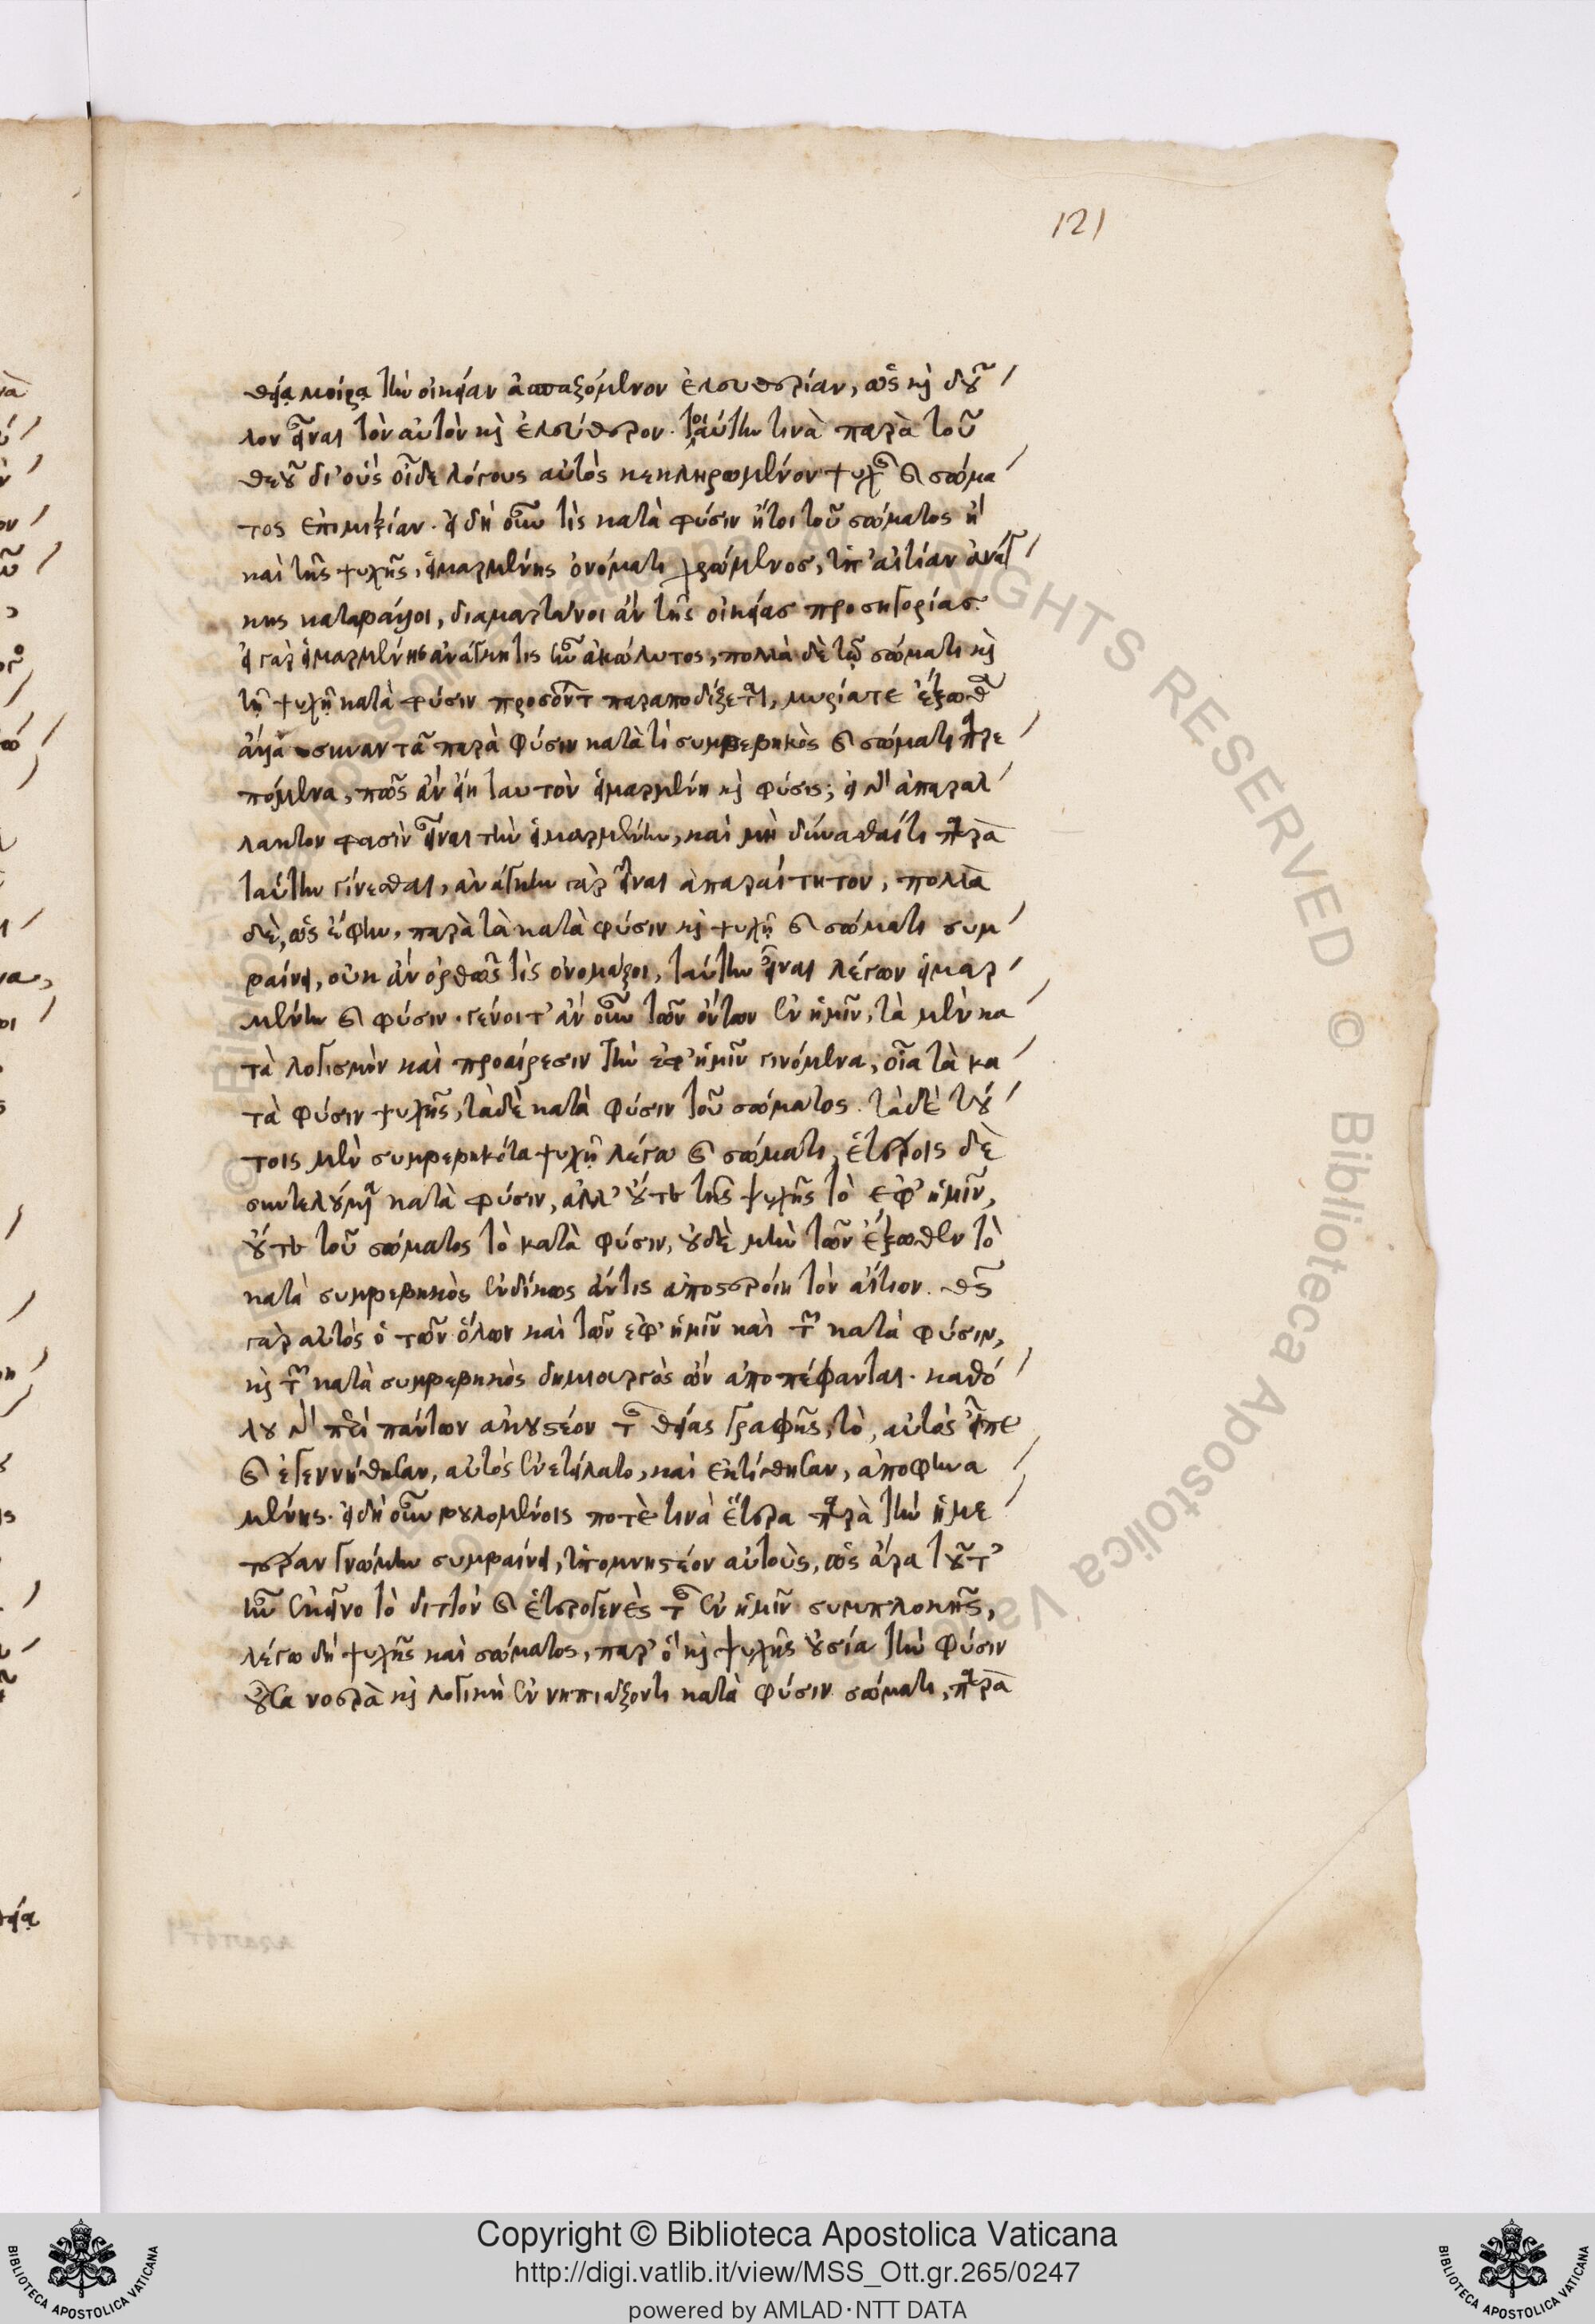 121
θείᾳ μοίρᾳ τὴν οἰκείαν ἀσπαζόμενον ἐλευθερίαν, ὡς καὶ δοῦ
λον εἶναι τὸν αὐτὸν καὶ ἐλεύθερον. τοιαύτην τινὰ παρὰ τοῦ
θεοῦ δι' οὓς οἶδε λόγους αὐτὸς κεκληρωμένον ψυχῆς καὶ σώμα
τος ἐπιμιξίαν. εἰ δὴ οὖν τὶς κατὰ φύσιν ἤτοι τοῦ σώματος ἢ
καὶ τῆς ψυχῆς, εἱμαρμένης ὀνόματι χρώμενος, τὴν αἰτίαν ἀνάγ
κης καταβάλλοι, διαμαρτάνοι ἂν τῆς οἰκείας προσηγορίας.
εἰ γὰρ εἱμαρμένης ἀνάγκη τις ἦν ἀκώλυτος, πολλὰ δὲ τῷ σώματι καὶ
τῇ ψυχῇ κατὰ φύσιν προσόντα παραποδίζεται, μυρία τε ἔξωθεν
ἄλλα συναντᾷ παρὰ φύσιν κατὰ τὶ συμβεβηκὸς καὶ σώματι παρε
πόμενα, πῶς ἂν εἴη ταυτὸν εἱμαρμένη καὶ φύσις; εἰ δ' ἀπαραλ
λακτον φασὶν εἶναι τὴν εἱμαρμένην, καὶ μὴ δύνασθαί τι παρὰ
ταύτην γίνεσθαι, ἀνάγκην γὰρ εἶναι ἀπαραίτητον, πολλὰ
δὲ, ὡς ἔφην, παρὰ τὰ κατὰ φύσιν καὶ ψυχῇ καὶ σώματι συμ
βαίνει, οὐκ ἂν ὀρθῶς τὶς ὀνομάζοι, ταύτην εἶναι λέγων εἱμαρ
μένην καὶ φύσιν. γένοιτ' ἂν οὖν τῶν ὄντων ἐν ἡμῖν, τὰ μὲν κα
τὰ λογισμὸν καὶ προαίρεσιν τὴν ἐφ' ἡμῖν γινόμενα, οἷα τὰ κα
τὰ φύσιν ψυχῆς, τὰ δὲ κατὰ φύσιν τοῦ σώματος. τὰ δὲ τού
τοις μὲν συμβεβηκότα ψυχῇ λέγω καὶ σώματι, ἑτέροις δὲ
συντελούμενα κατὰ φύσιν, ἀλλ' οὔτε τῆς ψυχῆς τὸ ἐφ' ἡμῖν,
οὔτε τοῦ σώματος τὸ κατὰ φύσιν, οὐδὲ μὴν τῶν ἔξωθεν τὸ
κατὰ συμβεβηκὸς ἐνδίκως ἄν τις ἀποστεροίη τὸν αἴτιον. θεὸς
γὰρ αὐτὸς ὁ τῶν ὅλων καὶ τῶν ἐφ' ἡμῖν καὶ τῶν κατὰ φύσιν,
καὶ τῶν κατὰ συμβεβηκὸς δημιουργὸς ὢν ἀποπέφανται. καθό
λου δ' περὶ πάντων ἀκουστέον τῆς θείας γραφῆς, τὸ, αὐτὸς εἶπε
καὶ ἐγεννήθησαν, αὐτὸς ἐνετείλατο, καὶ ἐκτίσθησαν, ἀποφηνα
μένης. εἰ δὴ οὖν βουλομένοις ποτὲ τινὰ ἕτερα παρὰ τὴν ἡμε
τέραν γνώμην συμβαίνει, ὑπομνηστέον αὐτοὺς, ὡς ἄρα τοῦτ'
ἦν ἐκεῖνο τὸ διττὸν καὶ ἑτερογενὲς τῆς ἐν ἡμῖν συμπλοκῆς,
λέγω δὴ ψυχῆς καὶ σώματος, παρ' ὃ καὶ ψυχῆς οὐσία τὴν φύσιν
οὖσα νοερὰ καὶ λογικὴ ἐν νηπιάζοντι κατὰ φύσιν σώματι, παρὰ
Copyright © Biblioteca Apostolica Vaticana
http://digi.vatlib.it/view/MSS_Ott.gr.265/0247
powered by AMLAD·NTT DATA